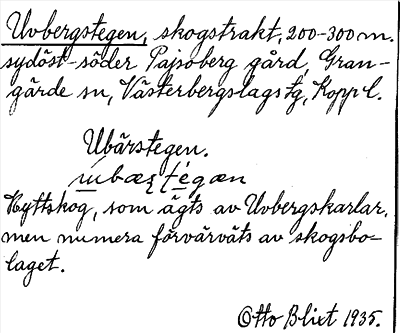 Uvbergstegen, skogstrakt, 200-300 m.
sydöst-söder Pajsoberg gård, Gran-
gärde sn, Västerbergslags tg, Kopp l.
Ubärstegen.
Hyttskog, som ägts av Uvbergskarlar,
men numera förvärvats av skogsbo-
laget.
Otto Blixt 1935.